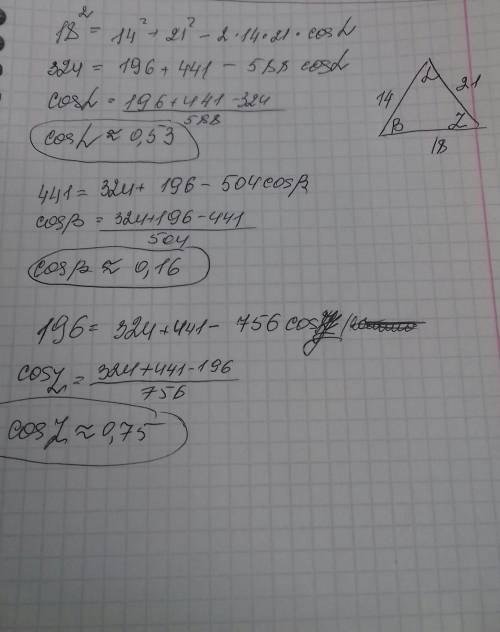 18² = 14² + 21² - 2·14·21·cosα
324 = 196 + 441 - 588 cosα
cosα = 196+441-324
588
cosα ≈ 0,53
α
14
21
β
γ
18
441 = 324 + 196 - 504cosβ
cosβ = 324+196-441
504
cosβ ≈ 0,16
196 = 324+441 - 756 cosγ
cosγ = 324+441-196
756
cosγ ≈ 0,75